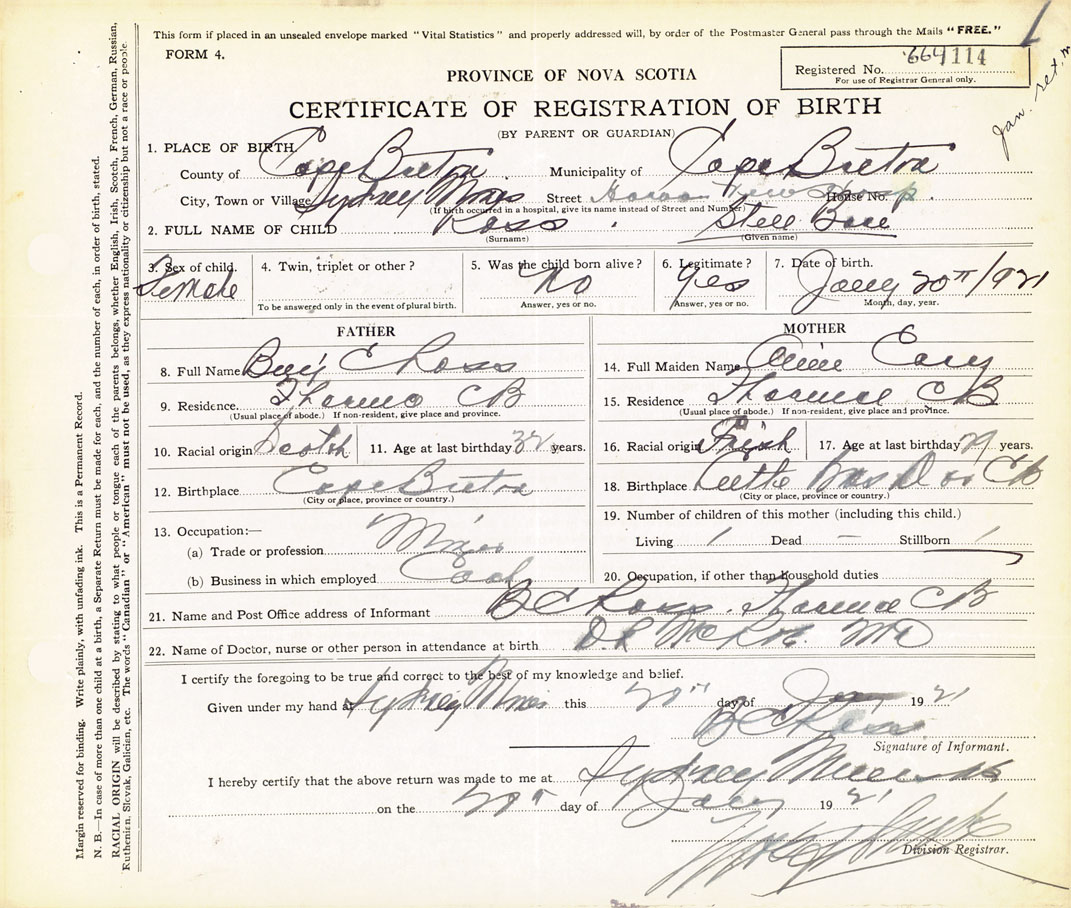 This form if placed in an unsealed envelope marked "Vital Statistics" and properly addressed will, by order of the Postmaster General pass through the Mails "FREE."
FORM 4.
Registered No. 669114
For use of Registrar General only.
Jan. ret.
PROVINCE OF NOVA SCOTIA
CERTIFICATE OF REGISTRATION OF BIRTH
(BY PARENT OR GUARDIAN)
1. PLACE OF BIRTH
County of Cape Breton Municipality of Cape Breton
City, Town or Village Sydney Mines Street House No.
(If birth occurred in a hospital, give its name instead of Street and Number)
2. FULL NAME OF CHILD Ross Still Born
(Surname) (Given name)
3. Sex of child. Female
4. Twin, triplet or other?
To be answered only in the event of plural birth.
5. Was the child born alive? No
Answer, yes or no.
6. Legitimate? Yes
Answer, yes or no.
7. Date of birth. Jany 20th 1921
Month, day, year.
FATHER
8. Full Name Benj C Ross
9. Residence. Florence CB
(Usual place of abode.) If non-resident, give place and province.
10. Racial origin Scotch 11. Age at last birthday 32 years.
12. Birthplace Cape Breton
(City or place, province or country.)
13. Occupation:—
(a) Trade or profession Miner
(b) Business in which employed Coal
MOTHER
14. Full Maiden Name Annie Cary
15. Residence Florence CB
(Usual place of abode.) If non-resident, give place and province.
16. Racial origin Irish 17. Age at last birthday 29 years.
18. Birthplace Little Bras D or CB
(City or place, province or country.)
19. Number of children of this mother (including this child.)
Living 1 Dead — Stillborn 1
20. Occupation, if other than household duties
21. Name and Post Office address of Informant B C Ross. Florence CB
22. Name of Doctor, nurse or other person in attendance at birth
I certify the foregoing to be true and correct to the best of my knowledge and belief.
Given under my hand at Sydney Mines this 20th day of Jany 1921
B C Ross
Signature of Informant.
I hereby certify that the above return was made to me at Sydney Mines
on the day of Jany 1921
Division Registrar.
Margin reserved for binding. Write plainly, with unfading ink. This is a Permanent Record.
N. B.—In case of more than one child at a birth, a Separate Return must be made for each, and the number of each, in order of birth, stated.
RACIAL ORIGIN will be described by stating to what people or tongue each of the parents belongs, whether English, Irish, Scotch, French, German, Russian,
Ruthenian, Slovak, Galician, etc. The words "Canadian" or "American" must not be used, as they express nationality or citizenship but not a race or people.